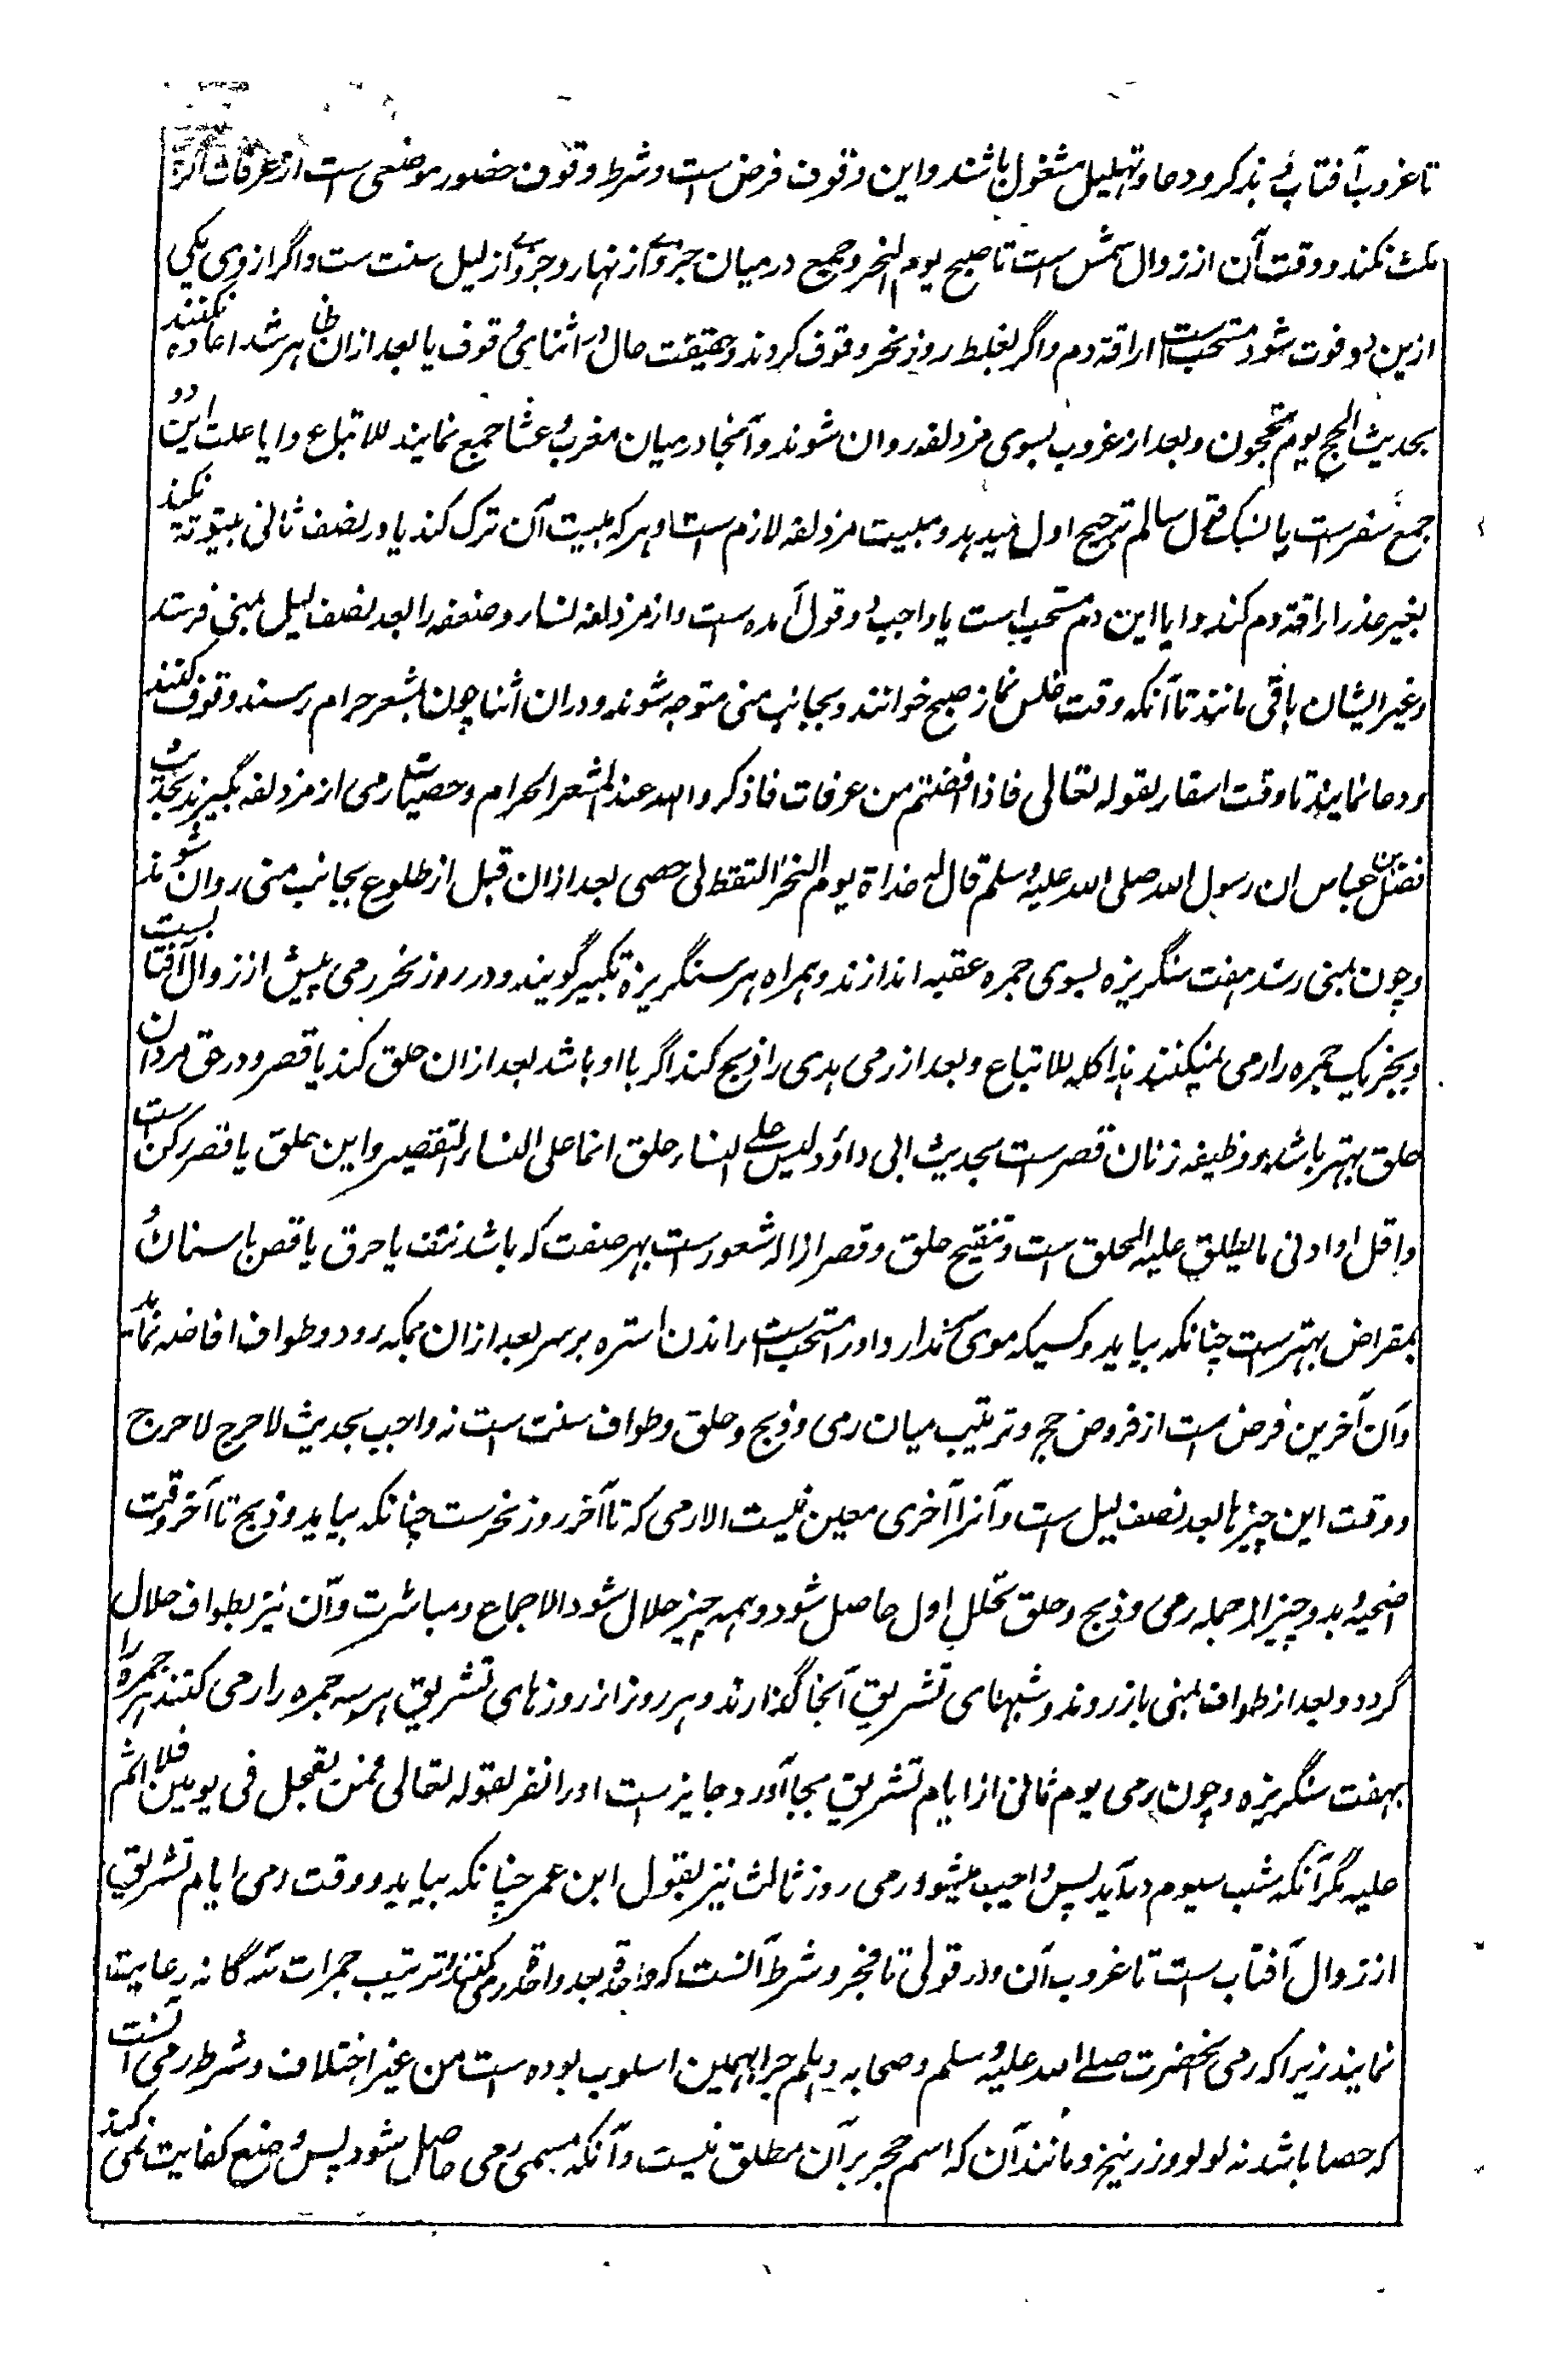 تا غروب آفتاب و بذکر و دعا و تهلیل مشغول باشند و این وقوف فرض است و شرط وقوف حضور موضعی است از عرفات اگرچه
مکث نکند و وقت آن از زوال شمس است تا صبح یوم النحر و جمع درمیان جزوے از نهار و جزوے از لیل سنت ست و اگر از وی یکی
ازین دو فوت شود مستحب ست اراقه دم و اگر بغلط روز نحر وقوف کردند و حقیقت حال در اثنای وقوف یا بعد ازان ظاهر شد اعاده نکنند
بحدیث الحج یوم تحجون و بعد از غروب بسوی مزدلفه روان شوند و آنجا درمیان مغرب و عشا جمع نمایند للاتباع و ایا علت این دو
جمع سفرست یا نسک قول سالم ترجیح اول میدهد و مبیت مزدلفه لازم ست و هر که مبیت آن ترک کند یا در نصف ثانی بیتوتة نکند
بغیر عذر اراقه دم کند و ایا این دم مستحب است یا واجب دو قول آمده ست و از مزدلفه نساء و ضعفه را بعد نصف لیل بمنی فرستد
و غیر ایشان باقی مانند تا آنکه وقت غلس نماز صبح خوانند و بجانب منی متوجه شوند و دران اثنا چون بمشعر حرام رسند وقوف کنند
و دعا نمایند تا وقت اسفار لقوله تعالی فاذا افضتم من عرفات فاذکروا الله عند المشعر الحرام و حصیات رمی از مزدلفه بگیرند بحدیث
فضل بن عباس ان رسول الله صلی الله علیه و سلم قال له غداة یوم النحر التقط لی حصی بعد ازان قبل از طلوع بجانب منی روان شوند
و چون بمنی رسند هفت سنگریزه بسوی جمره عقبه اندازند و همراه هر سنگریزه تکبیر گویند و در روز نحر رمی پیش از زوال آفتاب ست
و بجز یک جمره را رمی نمیکنند هذا کله للاتباع و بعد از رمی هدی را ذبح کند اگر با او باشد بعد ازان حلق کند یا قصر و در حق مردان
حلق بهتر باشد و وظیفه زنان قصرست بحدیث ابی داؤد لیس علے النساء حلق انما علی النساء التقصیر و این حلق یا قصر رکن ست
و اقل او ادنی ما یطلق علیه الحلق ست و تنقیح حلق و قصر ازاله شعور ست بهر صفت که باشد نتف یا حرق یا قص باسنان و
بمقراض بهتر ست چنانکه بیاید و کسیکه موی سر ندارد او را مستحب ست راندن استره بر سر بعد ازان بمکه رود و طواف افاضه نماید
و آن آخرین فرض ست از فروض حج و ترتیب میان رمی و ذبح و حلق و طواف سنت ست نه واجب بحدیث لا حرج لا حرج
و وقت این چیزها بعد نصف لیل ست و آنرا آخری معین نیست الا رمی که تا آخر روز نحرست چنانکه بیاید و ذبح تا آخر وقت
اضحیه و بدو چیز از جمله رمی و ذبح و حلق تحلل اول حاصل شود و همه چیز حلال شود الا جماع و مباشرت و آن نیز بطواف حلال
گردد و بعد از طواف بمنی باز روند و شبهای تشریق آنجا گذارند و هر روز از روزهای تشریق هر سه جمره را رمی کنند هر جمره را
بهفت سنگریزه و چون رمی یوم ثانی از ایام تشریق بجا آورد جایز ست او را نفر لقوله تعالی فمن تعجل فی یومین فلا اثم
علیه مگر آنکه شب سیوم در آید پس واجب میشود رمی روز ثالث نیز بقول ابن عمر چنانکه بیاید و وقت رمی ایام تشریق
از زوال آفتاب ست تا غروب آن و در قولی تا فجر و شرط آنست که واحدة بعد واحدة رمی کنند و ترتیب جمرات سه گانه رعایت
نمایند زیرا که رمی آنحضرت صلے الله علیه و سلم و صحابه و هلم جرا بهمین اسلوب بوده ست من غیر اختلاف و شرط رمی آنست
که حصا باشد نه لولو و زرنیخ و مانند آن که اسم حجر بر آن مطلق نیست و آنکه مسمی رمی حاصل شود پس وضع کفایت نمی کند